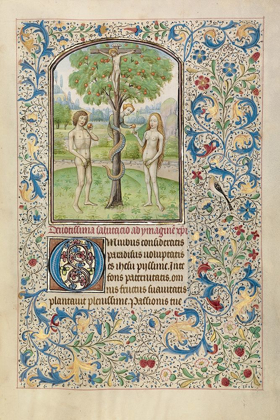 Deuotissima salutatio ad ymaginē xp̄i
Omnibus consideratis
paradisus voluptatis
es ihesu pijssime. Inter
fons paternitatis, om
nis fructus suauitatis
plantatus plenissime. Passionis tue